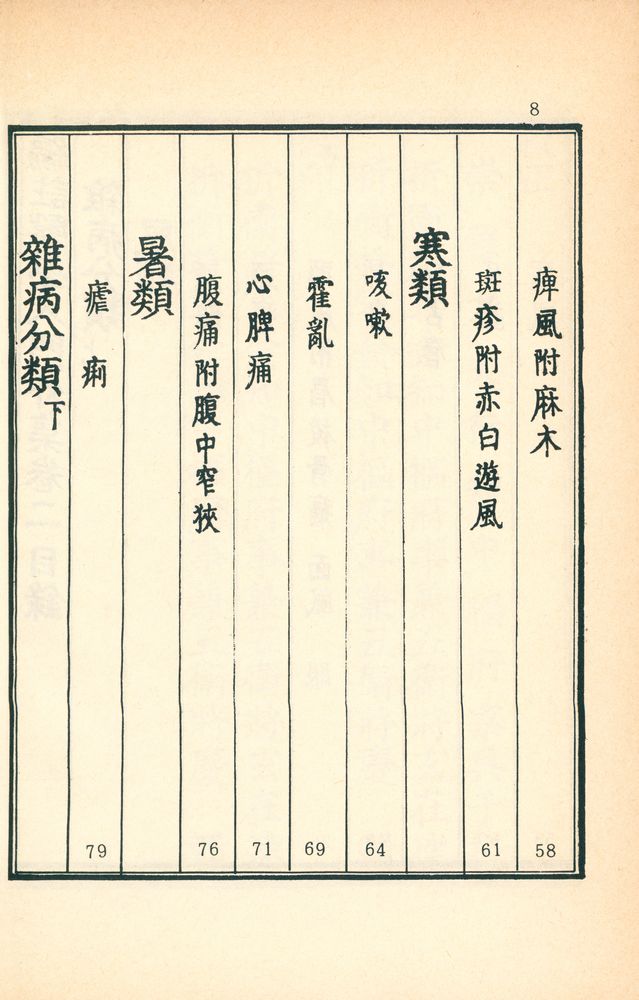 8
痺風附麻木 58
斑疹附赤白遊風 61
寒類
咳嗽 64
霍亂 69
心脾痛 71
腹痛附腹中窄狹 76
暑類
瘧痢 79
雜病分類下